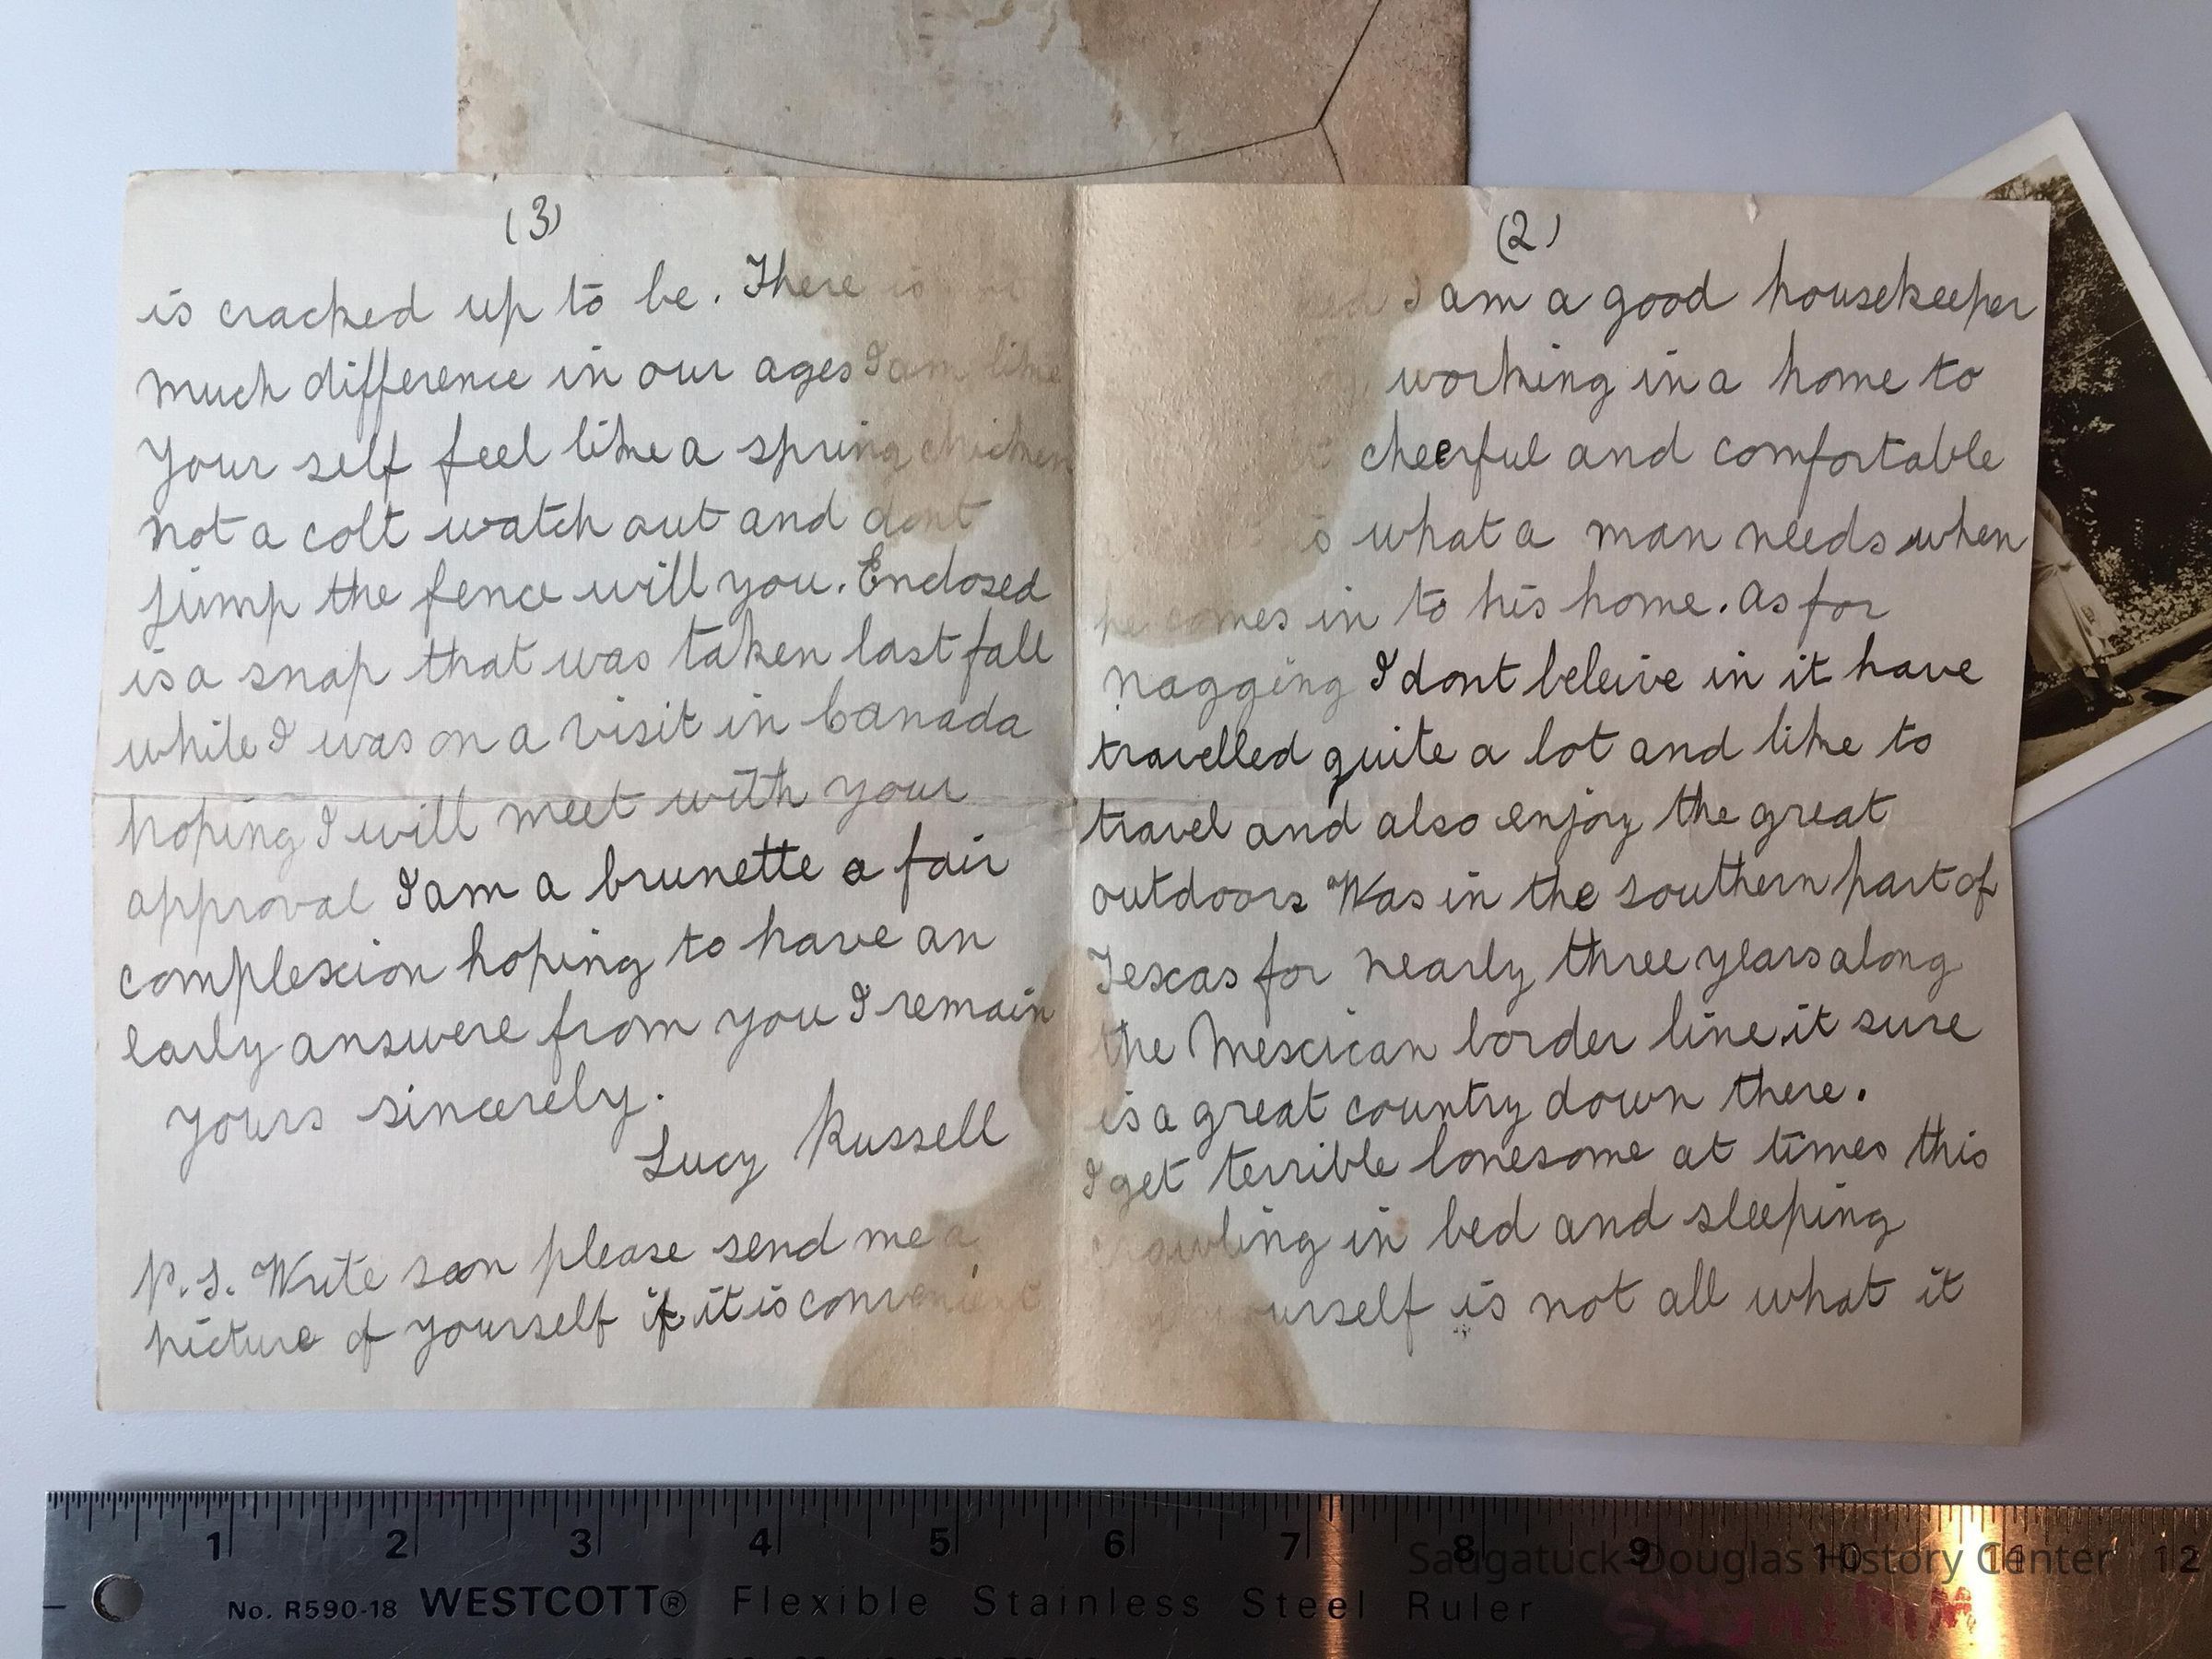 (3)
is cracked up to be. There is
much difference in our ages I am like
your self feel like a spring chicken
not a colt watch out and dont
jump the fence will you. Enclosed
is a snap that was taken last fall
while I was on a visit in Canada
hoping I will meet with your
approval I am a brunette a fair
complexion hoping to have an
early answere from you I remain
yours sincerely.
Lucy Russell
P.S. Write soon please send me a
picture of yourself if it is convenient
(2)
I am a good housekeeper
working in a home to
cheerful and comfortable
is what a man needs when
he comes in to his home. as for
nagging I dont beleive in it have
travelled quite a lot and like to
travel and also enjoy the great
outdoors Was in the southern part of
Texas for nearly three years along
the Mexican border line, it sure
is a great country down there.
I get terrible lonesome at times this
crawling in bed and sleeping
yourself is not all what it
1 2 3 4 5 6 7 8 9 10 11 12
No. R590-18 WESTCOTT® Flexible Stainless Steel Ruler
Saugatuck-Douglas History Center